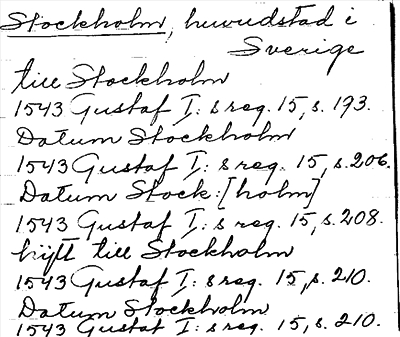 Stockholm, huvudstad i
Sverige
till Stockholm
1543 Gustaf I: s reg. 15, s. 193.
Datum Stockholm
1543 Gustaf I: s reg. 15, s. 206.
Datum Stock: [holm]
1543 Gustaf I: s reg. 15, s. 208.
till Stockholm
1543 Gustaf I: s reg. 15, s. 210.
Datum Stockholm
1543 Gustaf I: s reg. 15, s. 210.